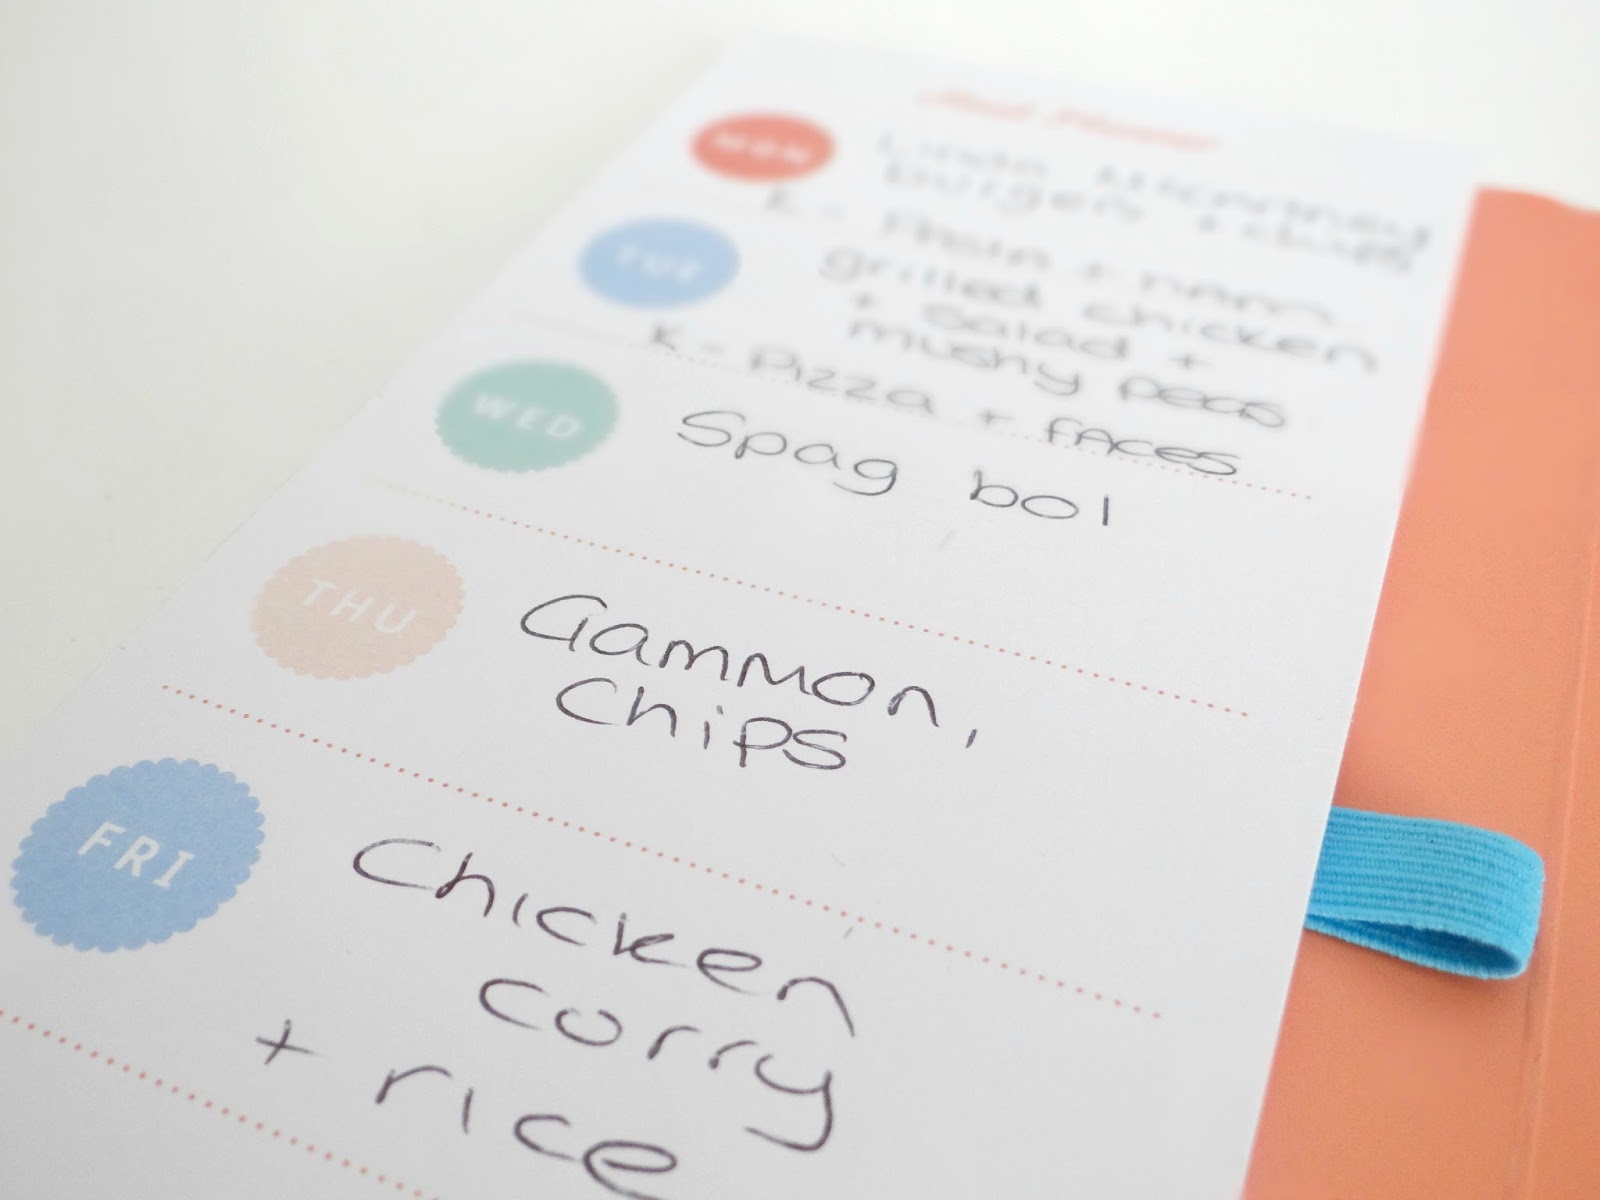 Meal Planner
MON
Linda McCartney
burgers + chips
K - Pasta + ham
TUE
grilled chicken
+ salad +
mushy peas
K - Pizza + FACES
WED
Spag bol
THU
Gammon,
Chips
FRI
Chicken
curry
+ rice